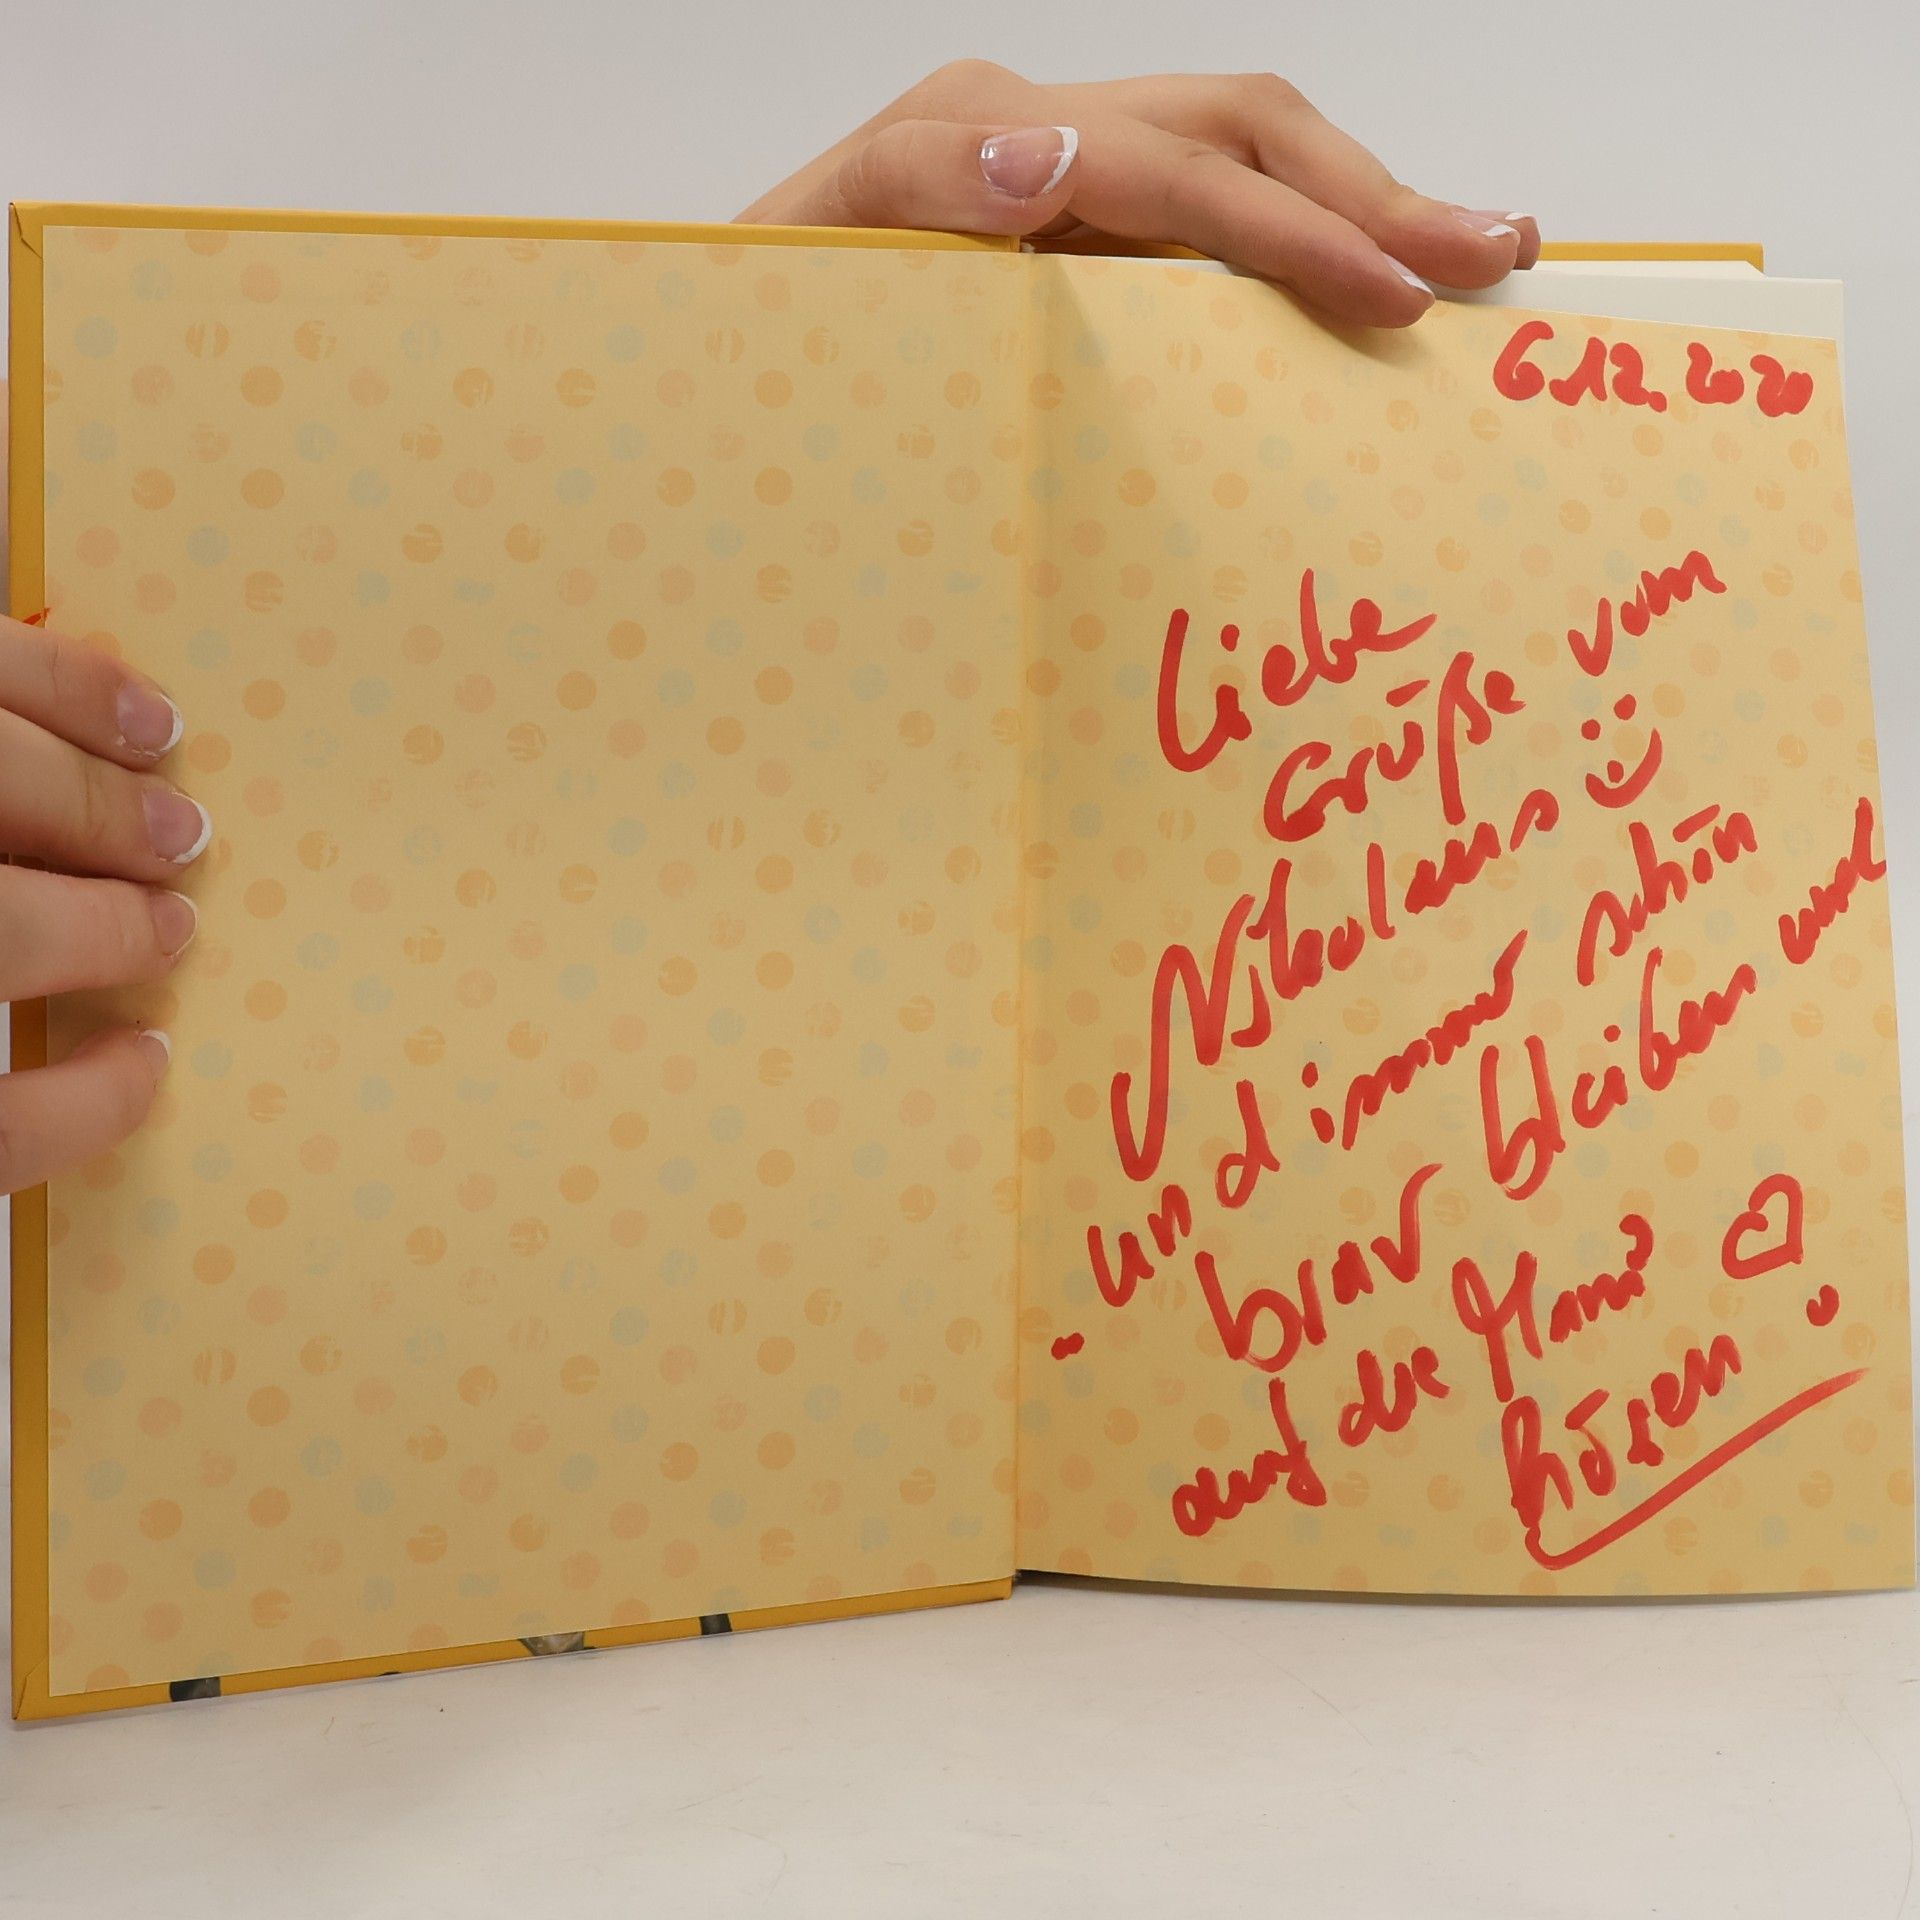 6.12.2020
Liebe
Grüße vom
Nikolaus
und immer schön
brav bleiben und
auf die Mami
hören